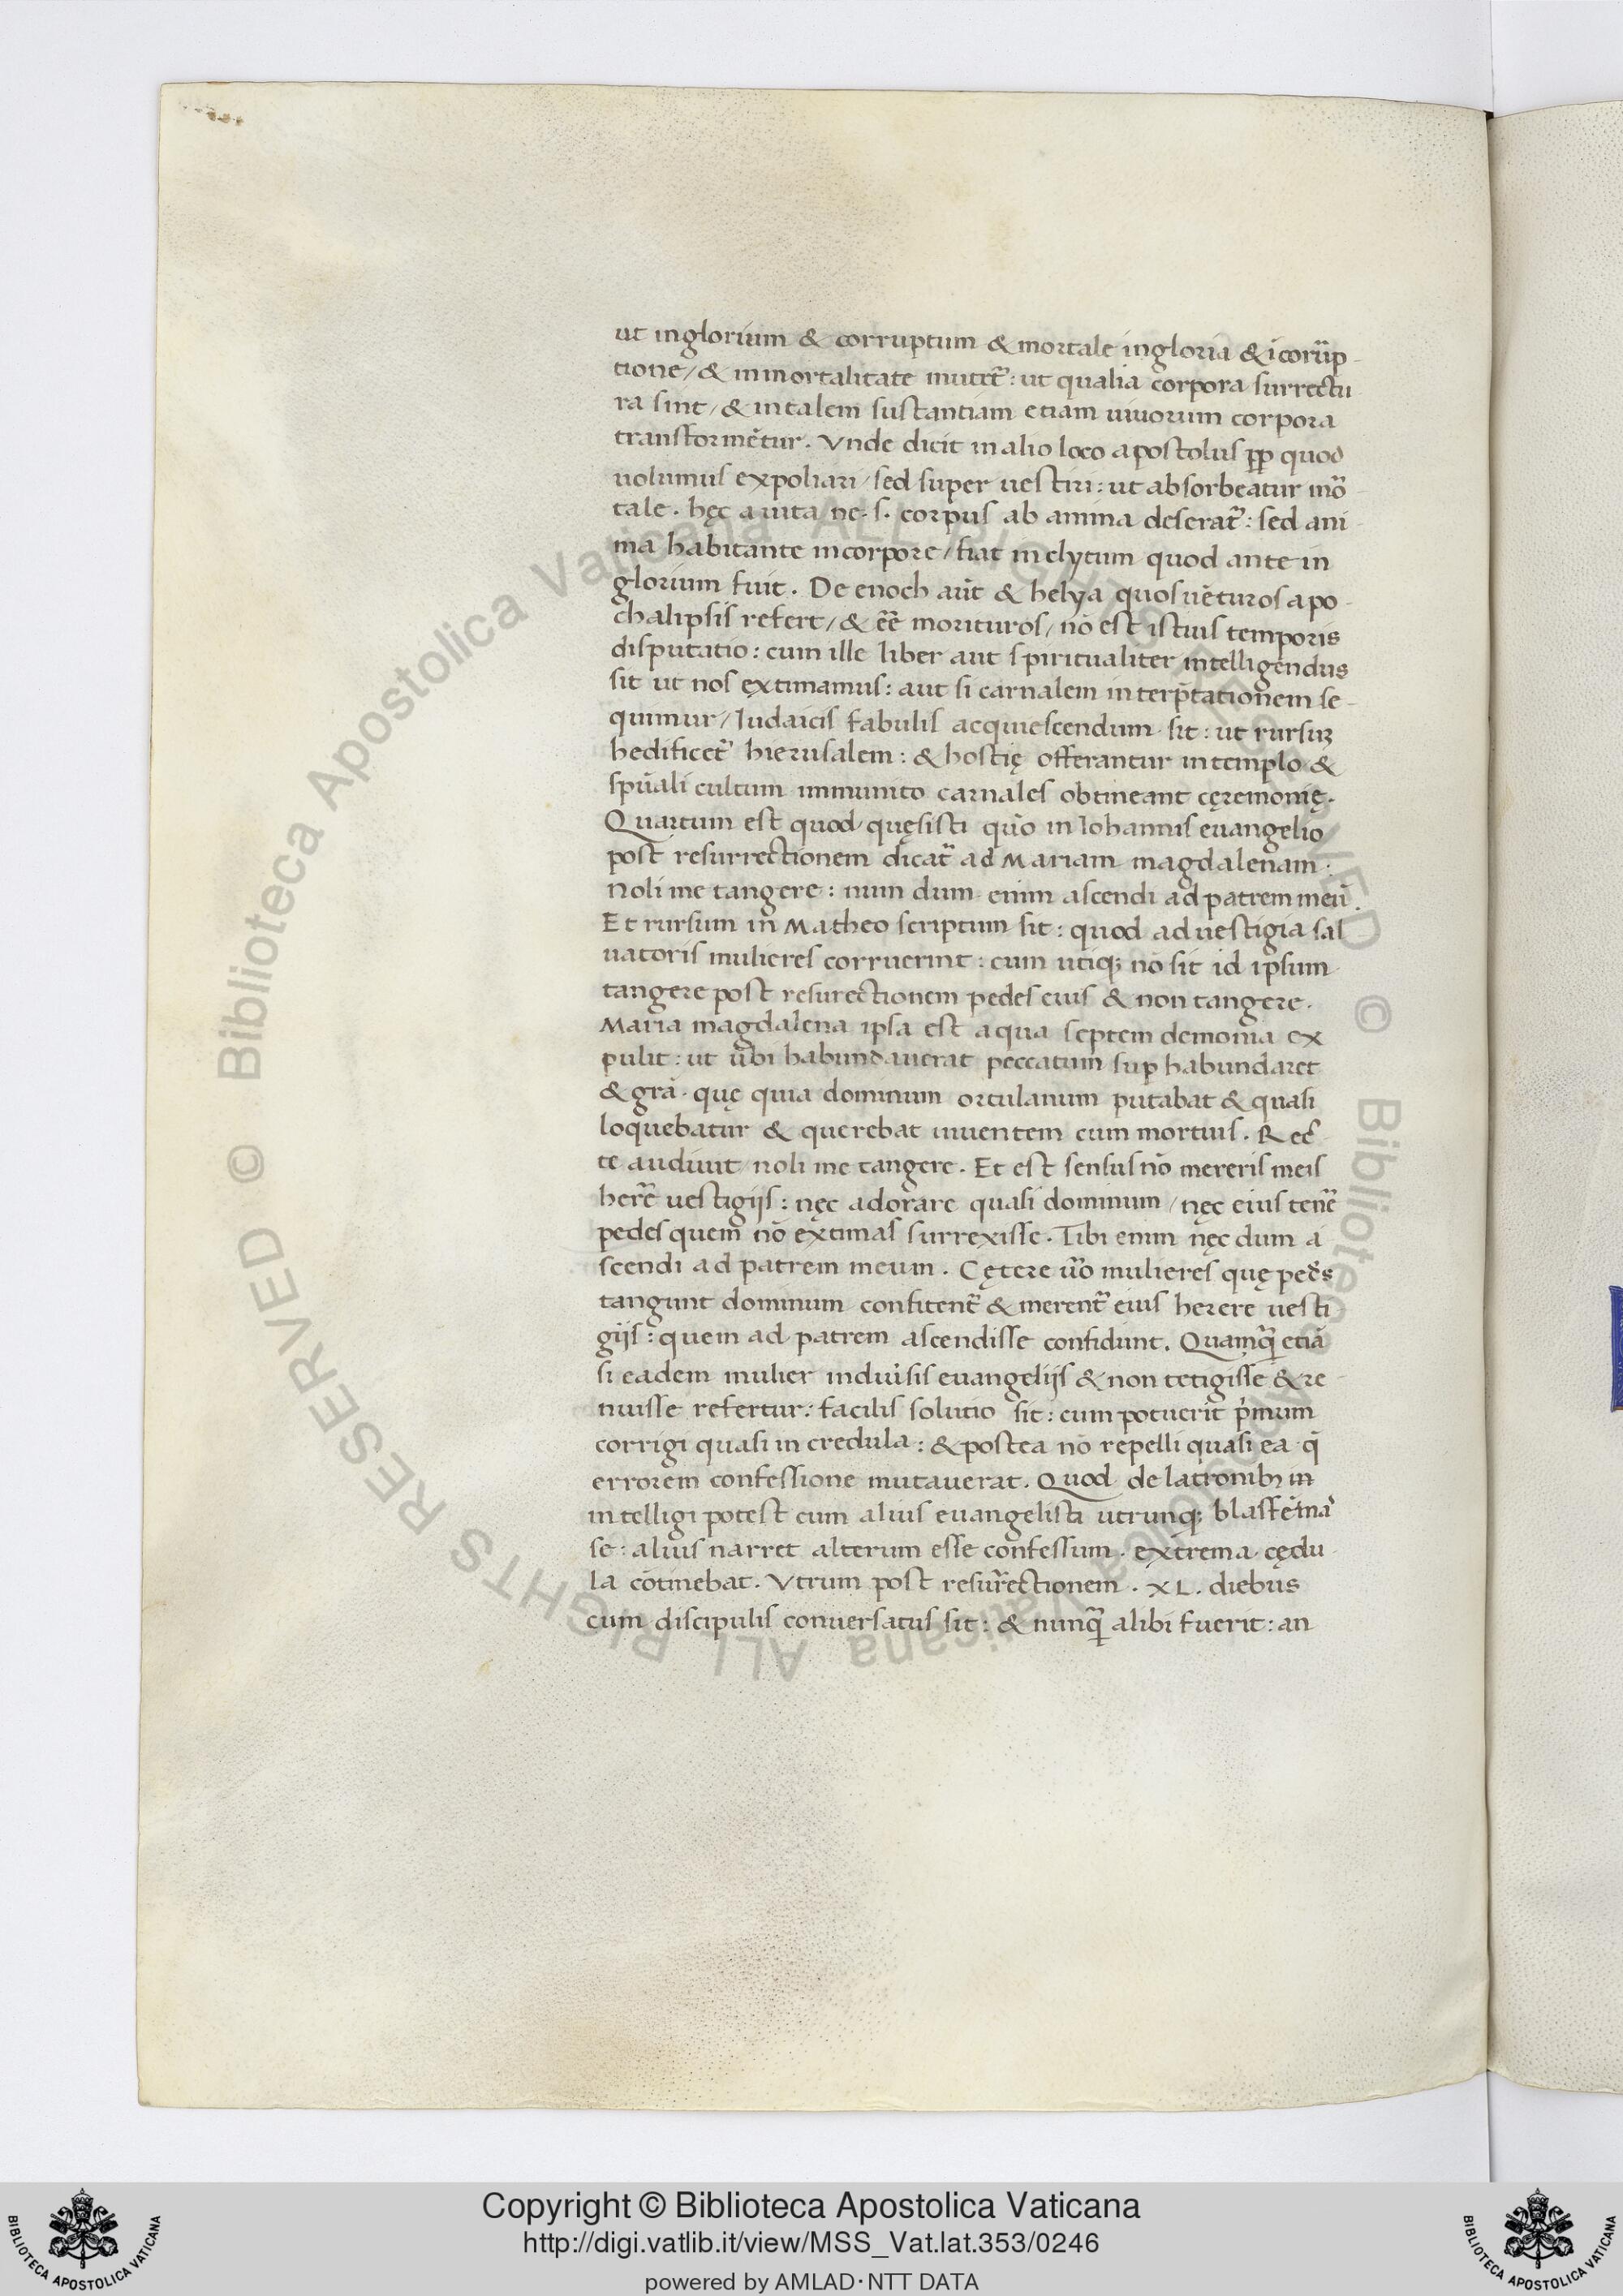 ut inglorium & corruptum & mortale in gloria & ĩcorũp-
tione/ & inmortalitate mutet᷑: ut qualia corpora surrectu
ra sint/ & in talem sustantiam etiam uiuorum corpora
transformẽtur. Vnde dicit in alio loco apostolus ꝓp quod
uolumus expoliari/ sed super uestiri: ut absorbeatur mõ-
tale. hęc a uita ne .s. corpus ab anima deserat᷑: sed ani-
ma habitante in corpore/ fiat inclytum quod ante in
glorium fuit. De enoch aũt & helya quos uẽturos apo-
chalipsis refert/ & eẽ morituros/ nõ est istius temporis
disputatio: cum ille liber aut spiritualiter intelligendus
sit ut nos extimamus: aut si carnalem interp̃tationem se-
quimur/ Iudaicis fabulis acquiescendum sit: ut rursuꝫ
hedificet᷑ hierusalem: & hostię offerantur in templo &
spũali cultum immunito carnales obtineant cęremonię.
Quartum est quod quęsisti quõ in Iohannis euangelio
post resurrectionem dicat᷑ ad Mariam magdalenam.
Noli me tangere: num dum enim ascendi ad patrem meũ.
Et rursum in Matheo scriptum sit: quod ad uestigia sal
uatoris mulieres corruerint: cum utiqꝫ nõ sit id ipsum
tangere post resurectionem pedes eius & non tangere.
Maria magdalena ipsa est a qua septem demonia ex
pulit: ut ubi habundauerat peccatum suꝑ habundaret
& grã. quę quia dominum ortulanum putabat & quasi
loquebatur & querebat uiuentem cum mortuis. Rec̃-
te audiuit/ noli me tangere. Et est sensus nõ mereris meis
herẽ uestigijs: nęc adorare quasi dominum/ nęc eius tenẽ
pedes quem nõ extimas surrexisse. Tibi enim nęc dum a
scendi ad patrem meum. Cętere ũo mulieres quę pedes
tangunt dominum confitent᷑ & merent᷑ eius herere uesti
gijs: quem ad patrem ascendisse confidunt. Quamq̃ etiã
si eadem mulier in diũsis euangelijs & non tetigisse & te-
nuisse refertur: facilis solutio sit: cum potuerit p̾mum
corrigi quasi in credula: & postea nõ repelli quasi ea q̃
errorem confessione mutauerat. Quod de latronibꝫ in
intelligi potest cum alius euangelista utrunqꝫ blasfẽma-
se: alius narret alterum esse confessum. extrema cędu-
la cõtinebat. Vtrum post resur̃ectionem .XL. diebus
cum discipulis conuersatus sit: & nunq̃ alibi fuerit: an
Copyright © Biblioteca Apostolica Vaticana
http://digi.vatlib.it/view/MSS_Vat.lat.353/0246
powered by AMLAD·NTT DATA
BIBLIOTECA APOSTOLICA VATICANA
BIBLIOTECA APOSTOLICA VATICANA
© Biblioteca Apostolica Vaticana ALL RIGHTS RESERVED © Biblioteca Apostolica Vaticana ALL RIGHTS RESERVED